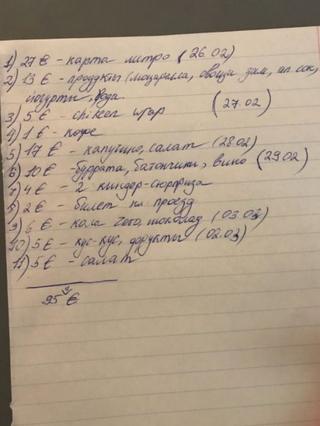 1) 27 € - карта метро (26.02)
2) 13 € - продукты (моцарелла, овощи зам, ап. сок,
йогурты, вода
3) 5 € - chicken wrap (27.02)
4) 1 € - кофе
5) 17 € - капучино, салат (28.02)
6) 10 € - буррата, батончики, вино (29.02)
7) 4 € - 2 киндер-сюрприза
8) 2 € - билет на проезд
9) 6 € - кола zero, шоколад (03.03)
10) 5 € - кус-кус, фрукты (02.03)
11) 5 € - салат
95 €